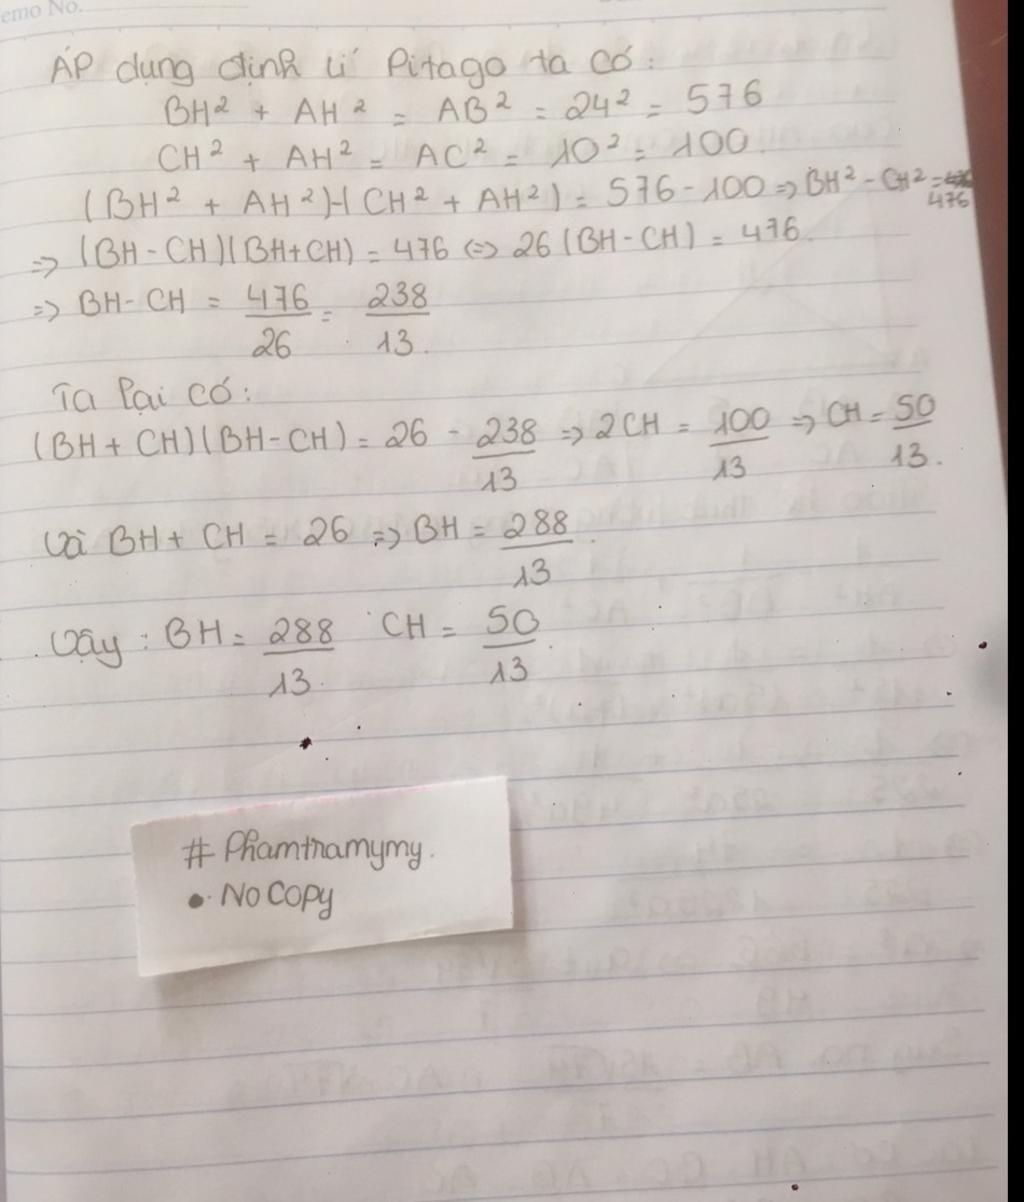 emo No.
ÁP dụng định lí Pitago ta có:
BH² + AH² = AB² = 24² = 576
CH² + AH² = AC² = 10² = 100.
(BH² + AH²)-(CH² + AH²) = 576 - 100 => BH² - CH² =
476
=> (BH - CH)(BH+CH) = 476 <=> 26 (BH - CH) = 476.
=> BH - CH = 476/26 = 238/13.
Ta lại có:
(BH + CH)(BH - CH) = 26 - 238/13 => 2CH = 100/13 => CH = 50/13.
Và BH + CH = 26 => BH = 288/13.
Vậy: BH = 288/13. CH = 50/13.
# Phamtramymy.
• No Copy